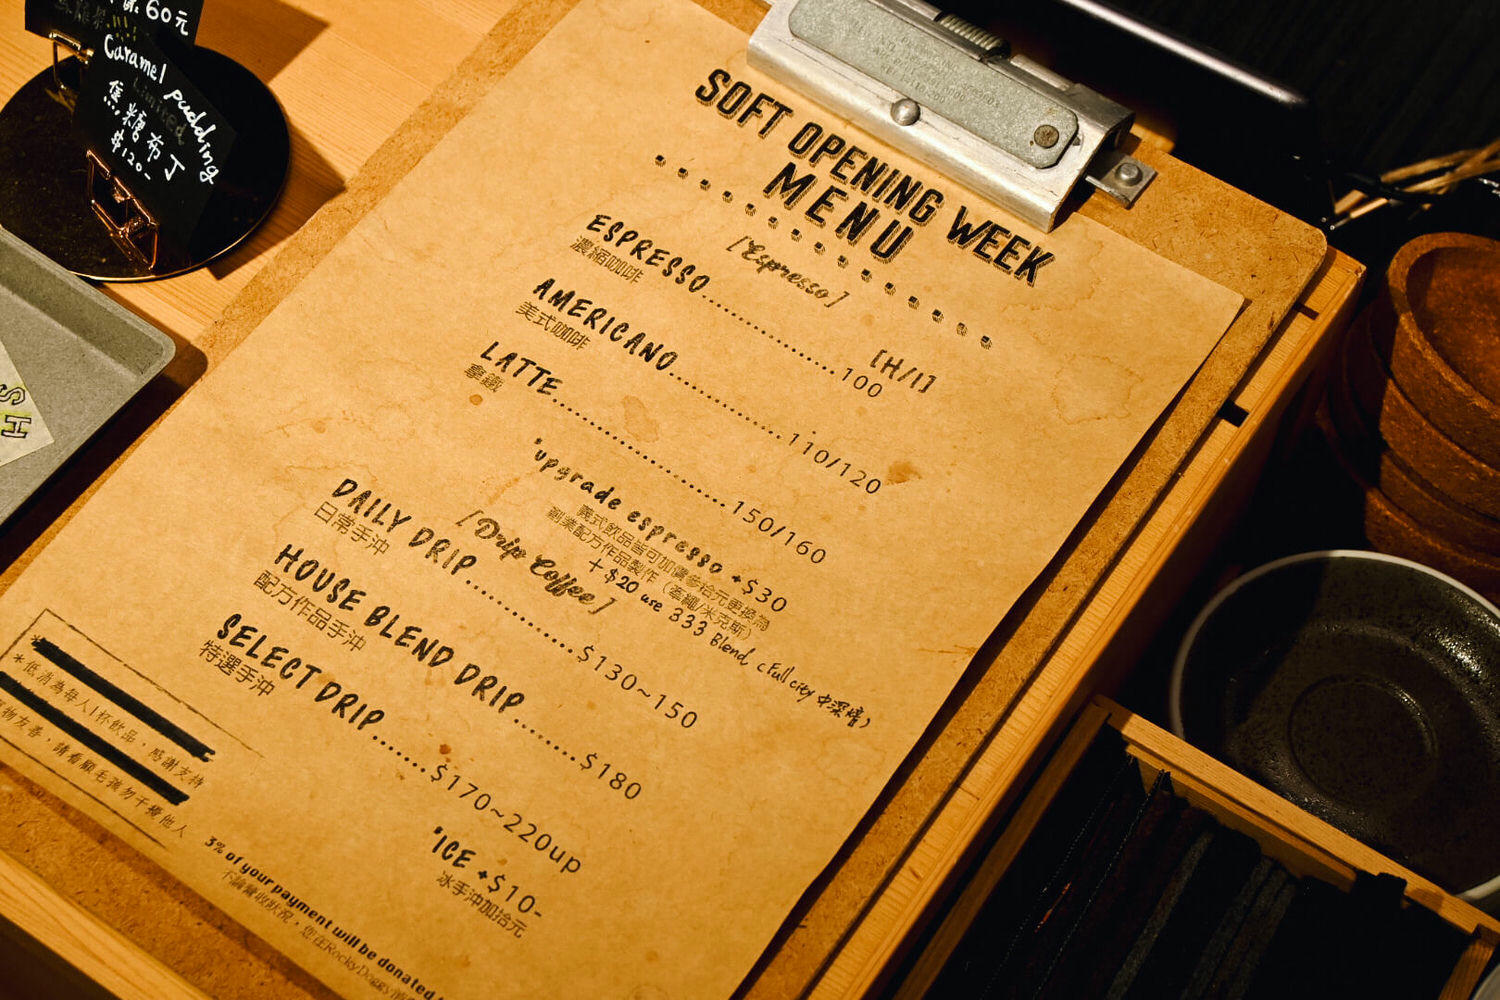 60元
Caramel pudding
Limited
焦糖布丁
$120-
SH
SOFT OPENING WEEK
MENU
[Espresso]
[H/I]
ESPRESSO 100
濃縮咖啡
AMERICANO 110/120
美式咖啡
LATTE 150/160
拿鐵
*upgrade espresso +$30
義式飲品皆可加價參拾元更換為
副業配方作品製作（牽繩/米克斯）
+$20 use 333 Blend (Full city 中深焙)
[Drip Coffee]
DAILY DRIP $130~150
日常手沖
HOUSE BLEND DRIP $180
配方作品手沖
SELECT DRIP $170~220up
特選手沖
*ICE +$10-
冰手沖加拾元
*低消為每人1杯飲品，感謝支持
物友善，請看顧毛孩勿干擾他人
3% of your payment will be donated
不論營收狀況，您在RockyDoggy